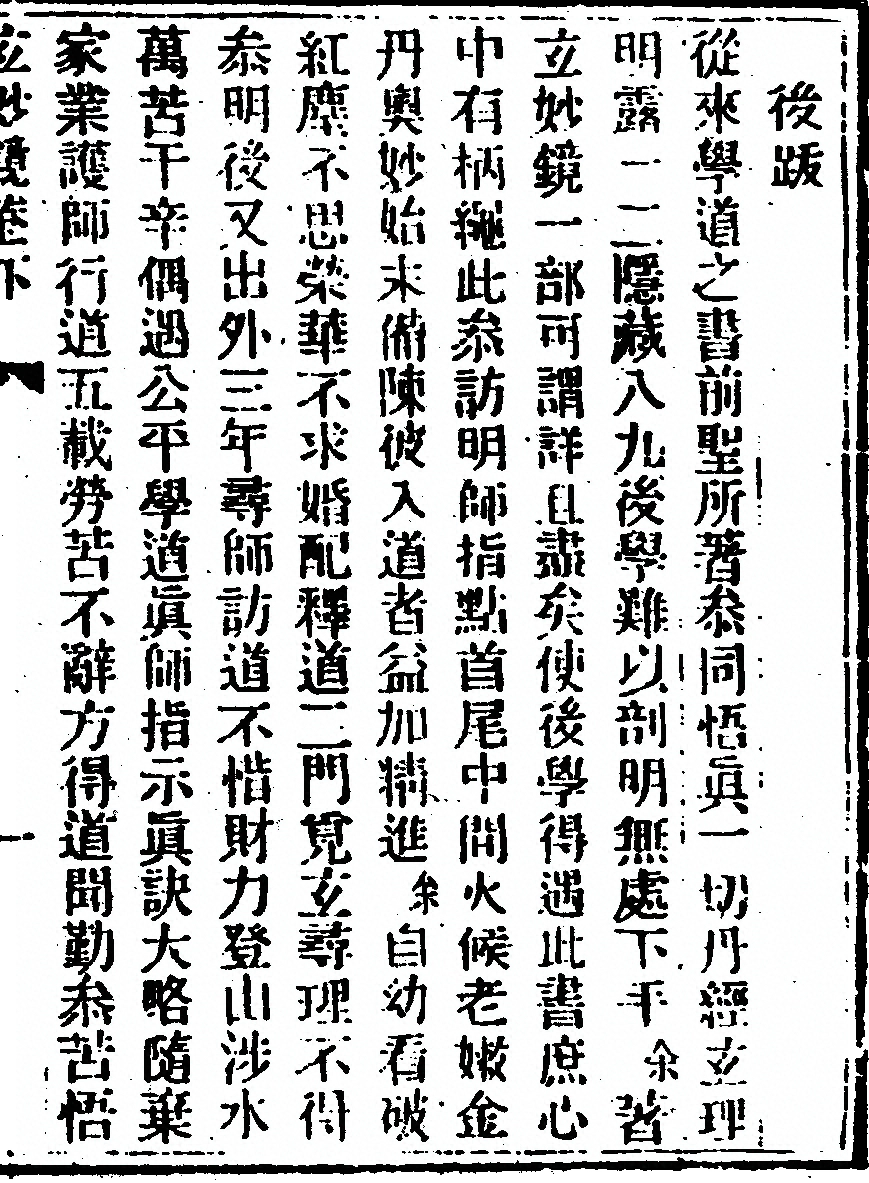 後跋
從來學道之書前聖所著叅同悟眞一切丹經玄理
明露一二隱藏八九後學難以剖明無處下手余著
玄妙鏡一部可謂詳且盡矣使後學得遇此書庶心
中有柄繩此叅訪明師指點首尾中間火候老嫩金
丹奧妙始末備陳彼入道者益加精進余自幼看破
紅塵不思榮華不求婚配釋道二門覓玄尋理不得
叅明後又出外三年尋師訪道不惜財力登山涉水
萬苦千辛偶遇公平學道眞師指示眞訣大略隨棄
家業護師行道五載勞苦不辭方得道聞勤叅苦悟
玄妙鏡卷下